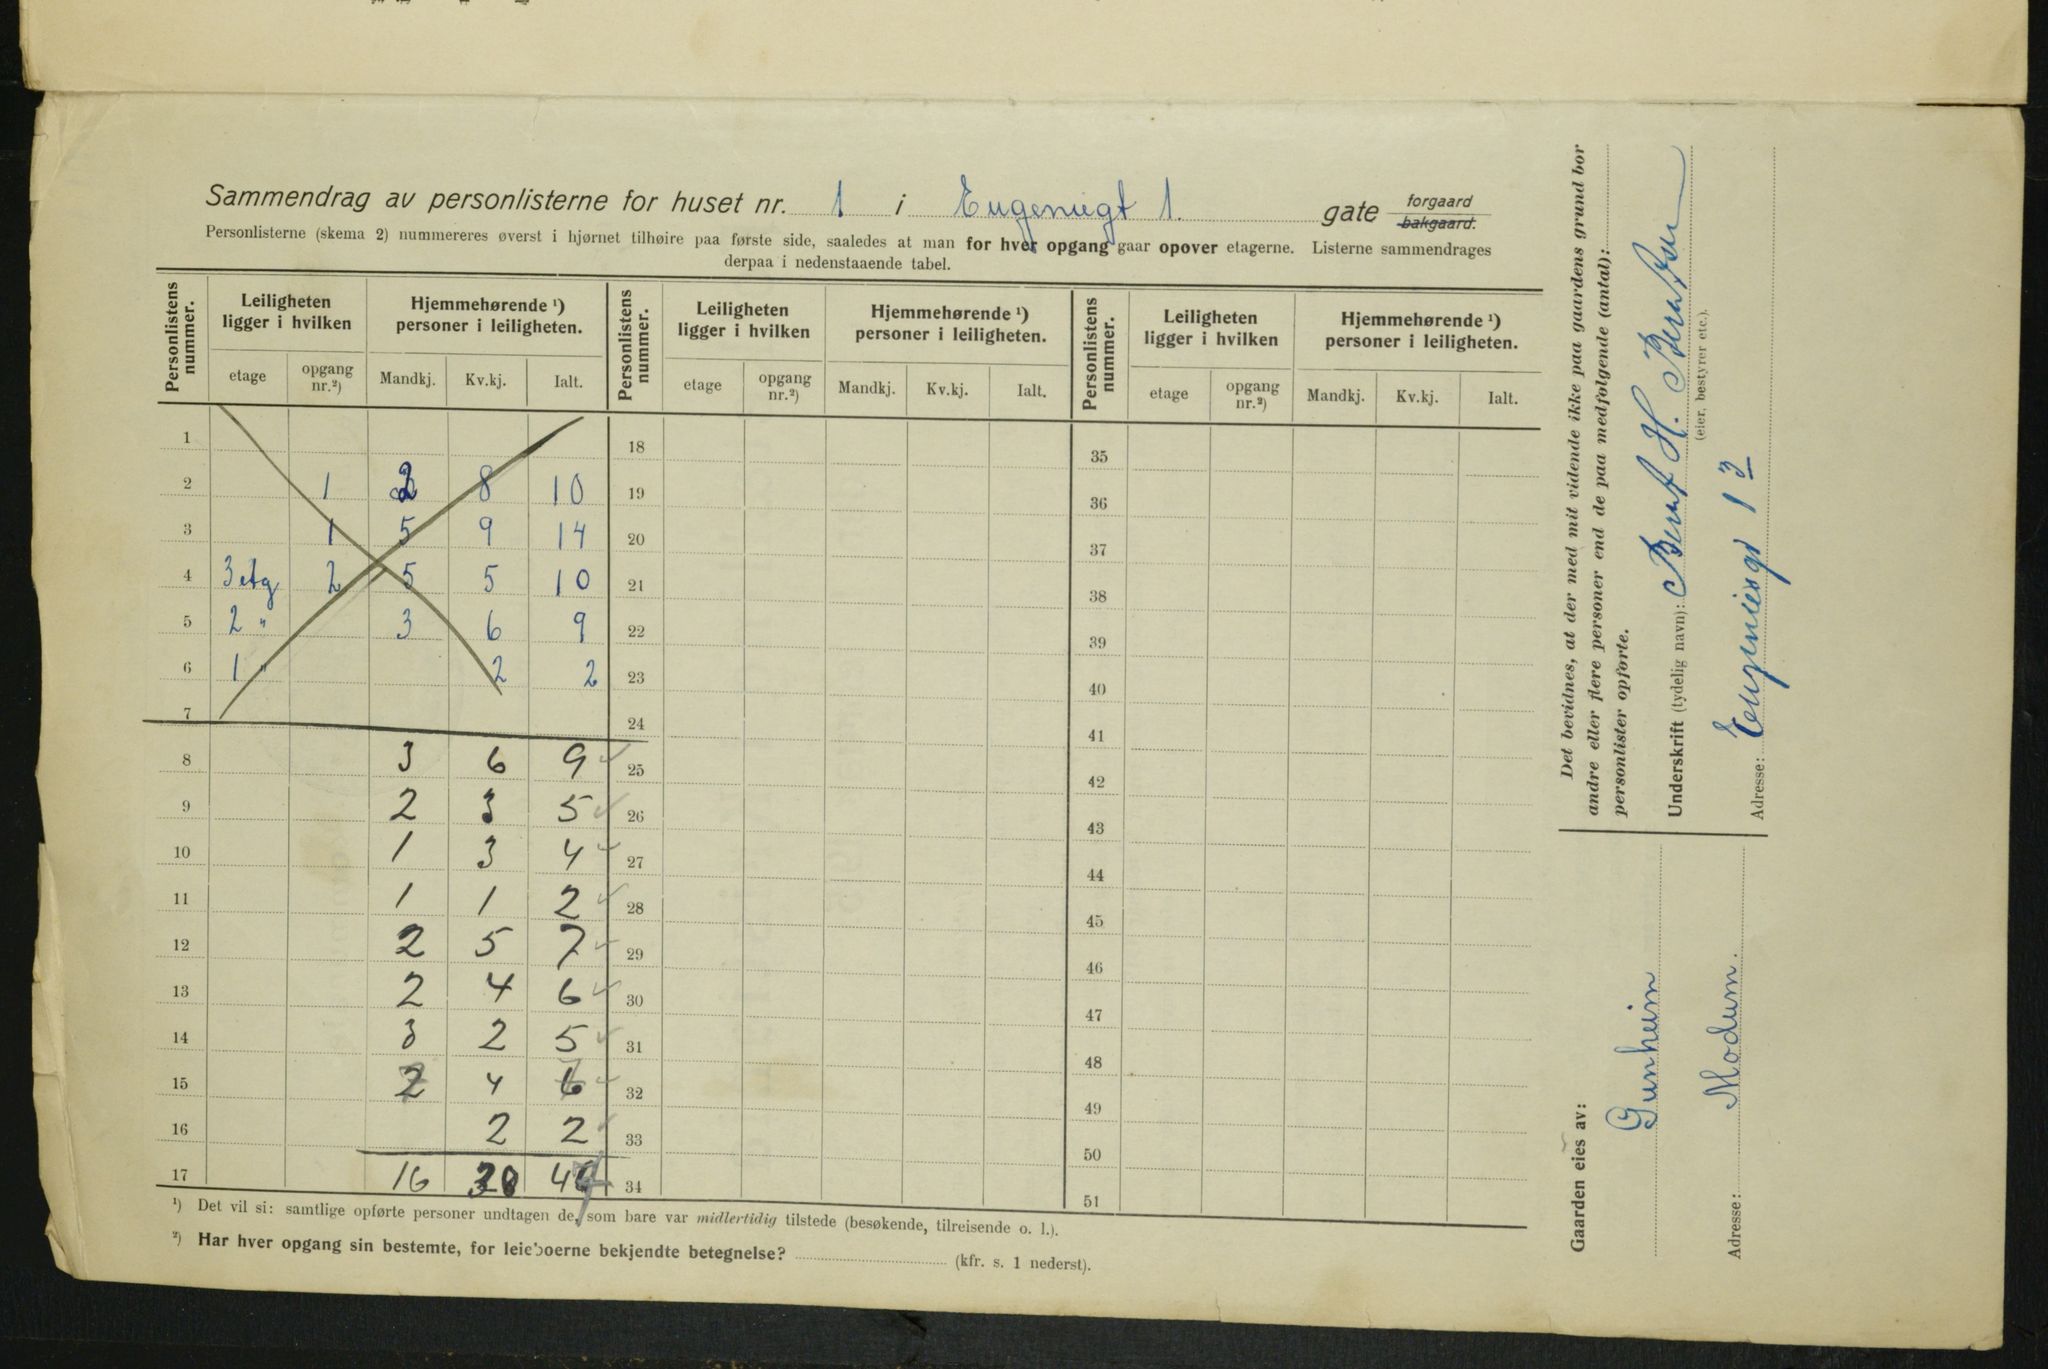 Sammendrag av personlisterne for huset nr. 1 i Eugeniegt 1. gate forgaard bakgaard.
Personlisterne (skema 2) nummereres øverst i hjørnet tilhøire paa første side, saaledes at man for hver opgang gaar opover etagerne. Listerne sammendrages
derpaa i nedenstaaende tabel.
Personlistens nummer. Leiligheten ligger i hvilken Hjemmehørende ¹) personer i leiligheten. Personlistens nummer. Leiligheten ligger i hvilken Hjemmehørende ¹) personer i leiligheten. Personlistens nummer. Leiligheten ligger i hvilken Hjemmehørende ¹) personer i leiligheten.
etage opgang nr.²) Mandkj. Kv.kj. Ialt. etage opgang nr.²) Mandkj. Kv.kj. Ialt. etage opgang nr.²) Mandkj. Kv.kj. Ialt.
1 18 35
2 1 2 8 10 19 36
3 1 5 9 14 20 37
4 3 etg 2 5 5 10 21 38
5 2 " 3 6 9 22 39
6 1 " 2 2 23 40
7 24 41
8 3 6 9 25 42
9 2 3 5 26 43
10 1 3 4 27 44
11 1 1 2 28 45
12 2 5 7 29 46
13 2 4 6 30 47
14 3 2 5 31 48
15 2 4 6 32 49
16 2 2 33 50
17 16 30 34 51
¹) Det vil si: samtlige opførte personer undtagen de, som bare var midlertidig tilstede (besøkende, tilreisende o. l.).
²) Har hver opgang sin bestemte, for leieboerne bekjendte betegnelse? (kfr. s. 1 nederst).
Det bevidnes, at der med mit vidende ikke paa gaardens grund bor
andre eller flere personer end de paa medfølgende (antal):
personlister opførte.
Underskrift (tydelig navn): Bernt H. Berntsen
(eier, bestyrer etc.).
Adresse: Eugeniesgt 1 3
Gaarden eies av:
Gunheim
Adresse: Modum.